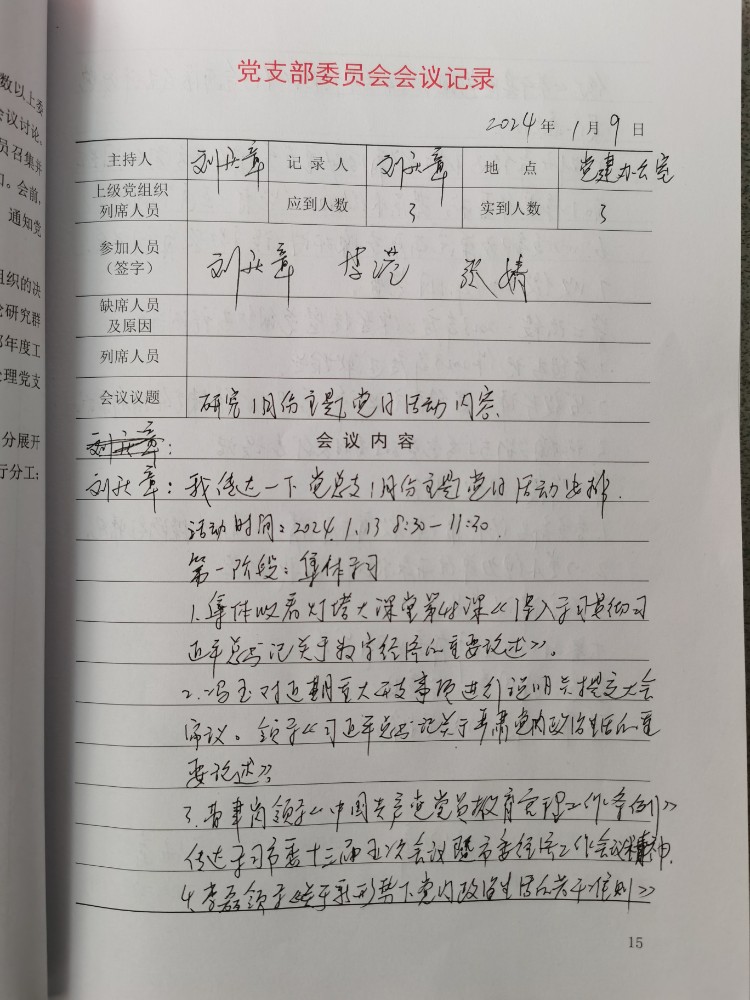 数以上委
会议讨论,
员召集并
口。会前,
通知党
组织的决
论研究群
部年度工
处理党支
分展开
行分工:
党支部委员会会议记录
2024年 1月 9日
主持人 刘秋章 记录人 刘秋章 地点 党建办公室
上级党组织列席人员 应到人数 3 实到人数 3
参加人员(签字) 刘秋章 李滢 张婧
缺席人员及原因
列席人员
会议议题 研究1月份主题党日活动内容.
刘秋章: 会议内容
刘秋章:我传达一下党总支1月份主题党日活动安排.
活动时间:2024.1.13 8:30-11:30.
第一阶段:集体学习
1.集体收看灯塔大课堂第48课《深入学习贯彻习
近平总书记关于数字经济的重要论述》。
2.冯玉对近期重大开支事项进行说明并提交大会
审议。领学《习近平总书记关于严肃党内政治生活的重
要论述》
3. 领学《中国共产党党员教育管理工作条例》
传达学习市委十三届五次会议暨市委经济工作会议精神.
4.李磊领学《关于新形势下党内政治生活的若干准则》
15